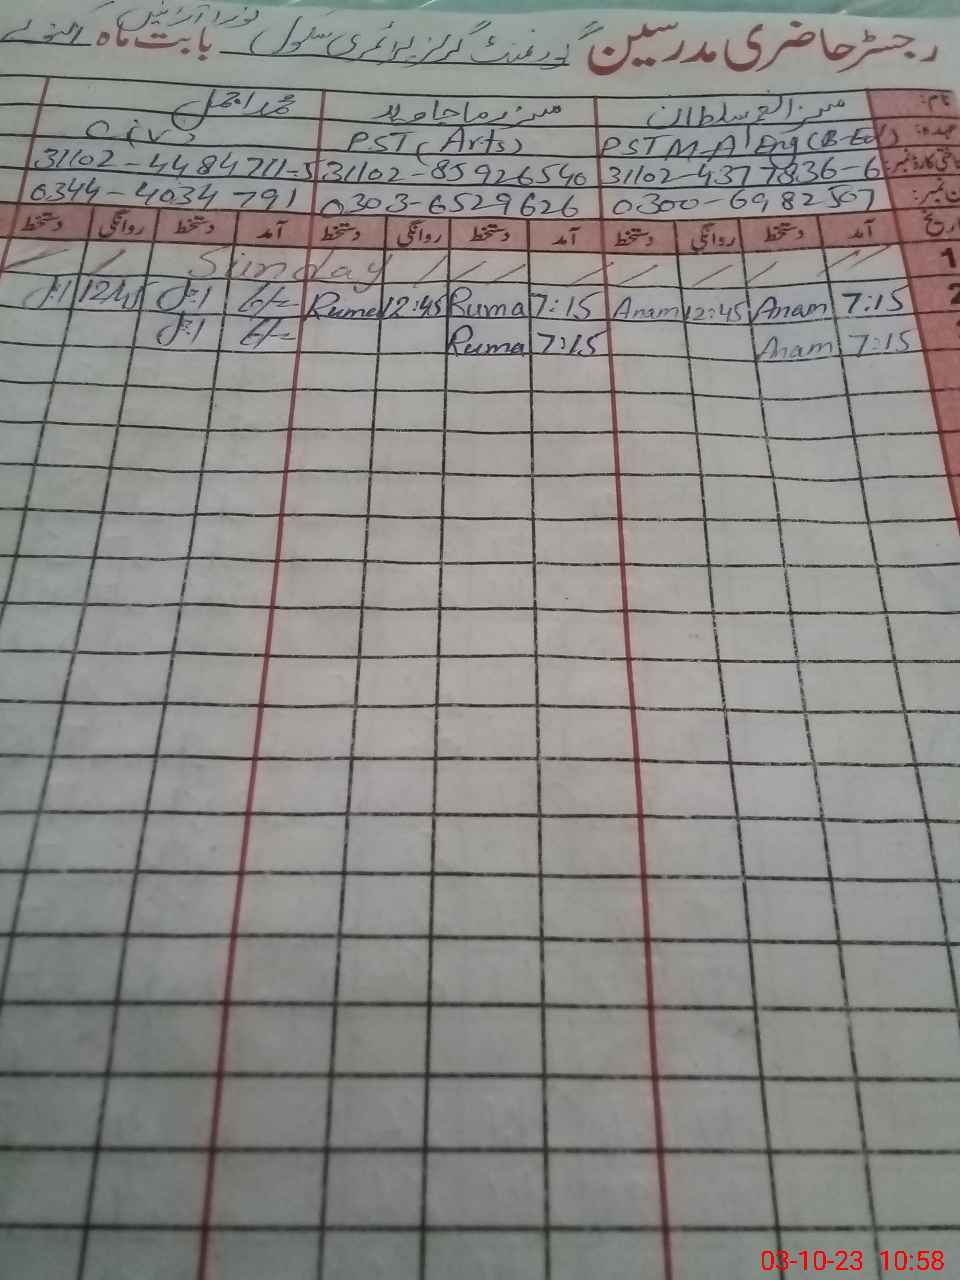 رجسٹر حاضری مدرسین گورنمنٹ گرلز پرائمری سکول بابت ماہ اکتوبر
نام: مسز انعم سلطان مسز رما جاوید محمد اجمل
عہدہ: PST M.A Eng (B-Ed) PST (Arts) Civ
شناختی کارڈ نمبر: 31102-4377836-6 31102-8592654 31102-4484711-5
فون نمبر: 0300-6982507 0303-6529626 0344-4034791
تاریخ آمد دستخط روانگی دستخط آمد دستخط روانگی دستخط آمد دستخط روانگی دستخط
1 Sunday
2 7:15 Anam 12:45 Anam 7:15 Ruma 12:45 Ruma 12:45
7:15 Anam 7:15 Ruma
03-10-23 10:58